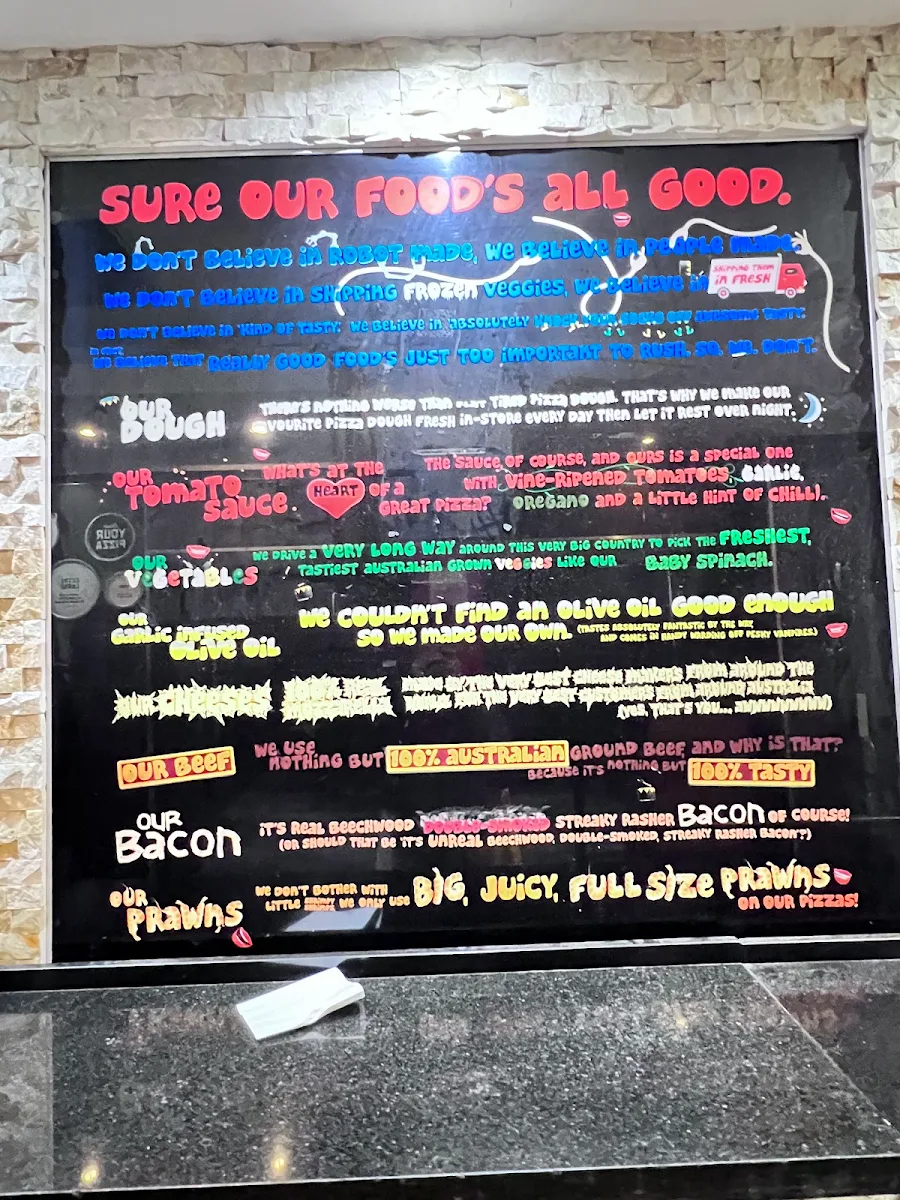 SURE OUR FOOD'S ALL GOOD.
WE DON'T BELIEVE IN ROBOT MADE, WE BELIEVE IN PEOPLE MADE.
WE DON'T BELIEVE IN SHIPPING FROZEN VEGGIES, WE BELIEVE IN
SHIPPING THEM
IN FRESH
WE DON'T BELIEVE IN 'KIND OF TASTY.' WE BELIEVE IN 'ABSOLUTELY AWESOME TASTY.'
WE BELIEVE THAT REALLY GOOD FOOD'S JUST TOO IMPORTANT TO RUSH. SO. WE. DON'T.
OUR
DOUGH
THERE'S NOTHING WORSE THAN FLAT TIRED PIZZA DOUGH. THAT'S WHY WE MAKE OUR
VOURITE PIZZA DOUGH FRESH IN-STORE EVERY DAY THEN LET IT REST OVER NIGHT.
OUR
TOMATO
SAUCE.
WHAT'S AT THE
HEART OF A
GREAT PIZZA?
THE SAUCE OF COURSE, AND OURS IS A SPECIAL ONE
WITH VINE-RIPENED TOMATOES, GARLIC,
OREGANO AND A LITTLE HINT OF CHILLI).
YOUR
PIZZA
OUR
VEGETABLES
WE DRIVE A VERY LONG WAY AROUND THIS VERY BIG COUNTRY TO PICK THE FRESHEST,
TASTIEST AUSTRALIAN GROWN VEGGIES LIKE OUR BABY SPINACH.
OUR
GARLIC INFUSED
OLIVE OIL
WE COULDN'T FIND AN OLIVE OIL GOOD ENOUGH
SO WE MADE OUR OWN. (TASTES ABSOLUTELY FANTASTIC BY THE WAY
AND COMES IN HANDY WARDING OFF PESKY VAMPIRES)
OUR CHEESES
MADE BY THE VERY BEST CHEESE MAKERS FROM AROUND THE
WORLD, FOR THE VERY BEST CUSTOMERS FROM AROUND AUSTRALIA
(YES, THAT'S YOU...
OUR BEEF
WE USE
NOTHING BUT 100% AUSTRALIAN GROUND BEEF, AND WHY IS THAT?
BECAUSE IT'S NOTHING BUT 100% TASTY
OUR
BACON
IT'S REAL BEECHWOOD DOUBLE-SMOKED STREAKY RASHER BACON OF COURSE!
(OR SHOULD THAT BE IT'S UNREAL BEECHWOOD, DOUBLE-SMOKED, STREAKY RASHER BACON?)
OUR
PRAWNS
WE DON'T BOTHER WITH
LITTLE WE ONLY USE BIG, JUICY, FULL SIZE PRAWNS
ON OUR PIZZAS!